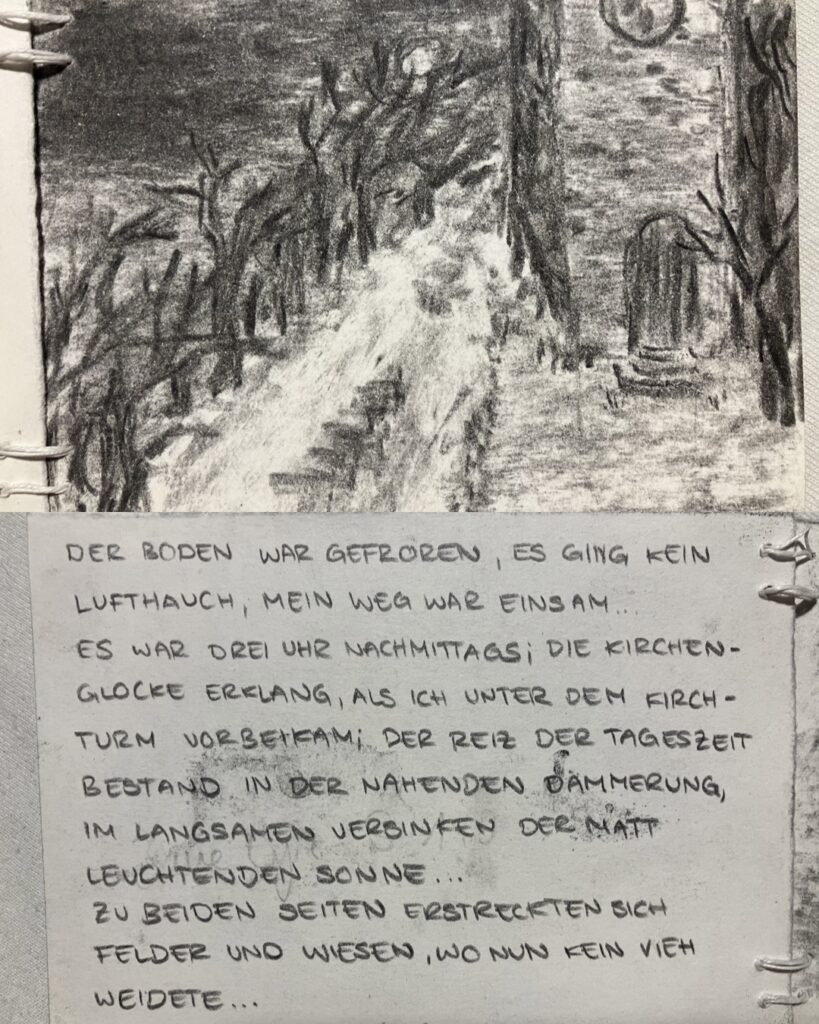 DER BODEN WAR GEFROREN, ES GING KEIN
LUFTHAUCH, MEIN WEG WAR EINSAM...
ES WAR DREI UHR NACHMITTAGS; DIE KIRCHEN-
GLOCKE ERKLANG, ALS ICH UNTER DEM KIRCH-
TURM VORBEIKAM; DER REIZ DER TAGESZEIT
BESTAND IN DER NAHENDEN DÄMMERUNG,
IM LANGSAMEN VERSINKEN DER MATT
LEUCHTENDEN SONNE...
ZU BEIDEN SEITEN ERSTRECKTEN SICH
FELDER UND WIESEN, WO NUN KEIN VIEH
WEIDETE...